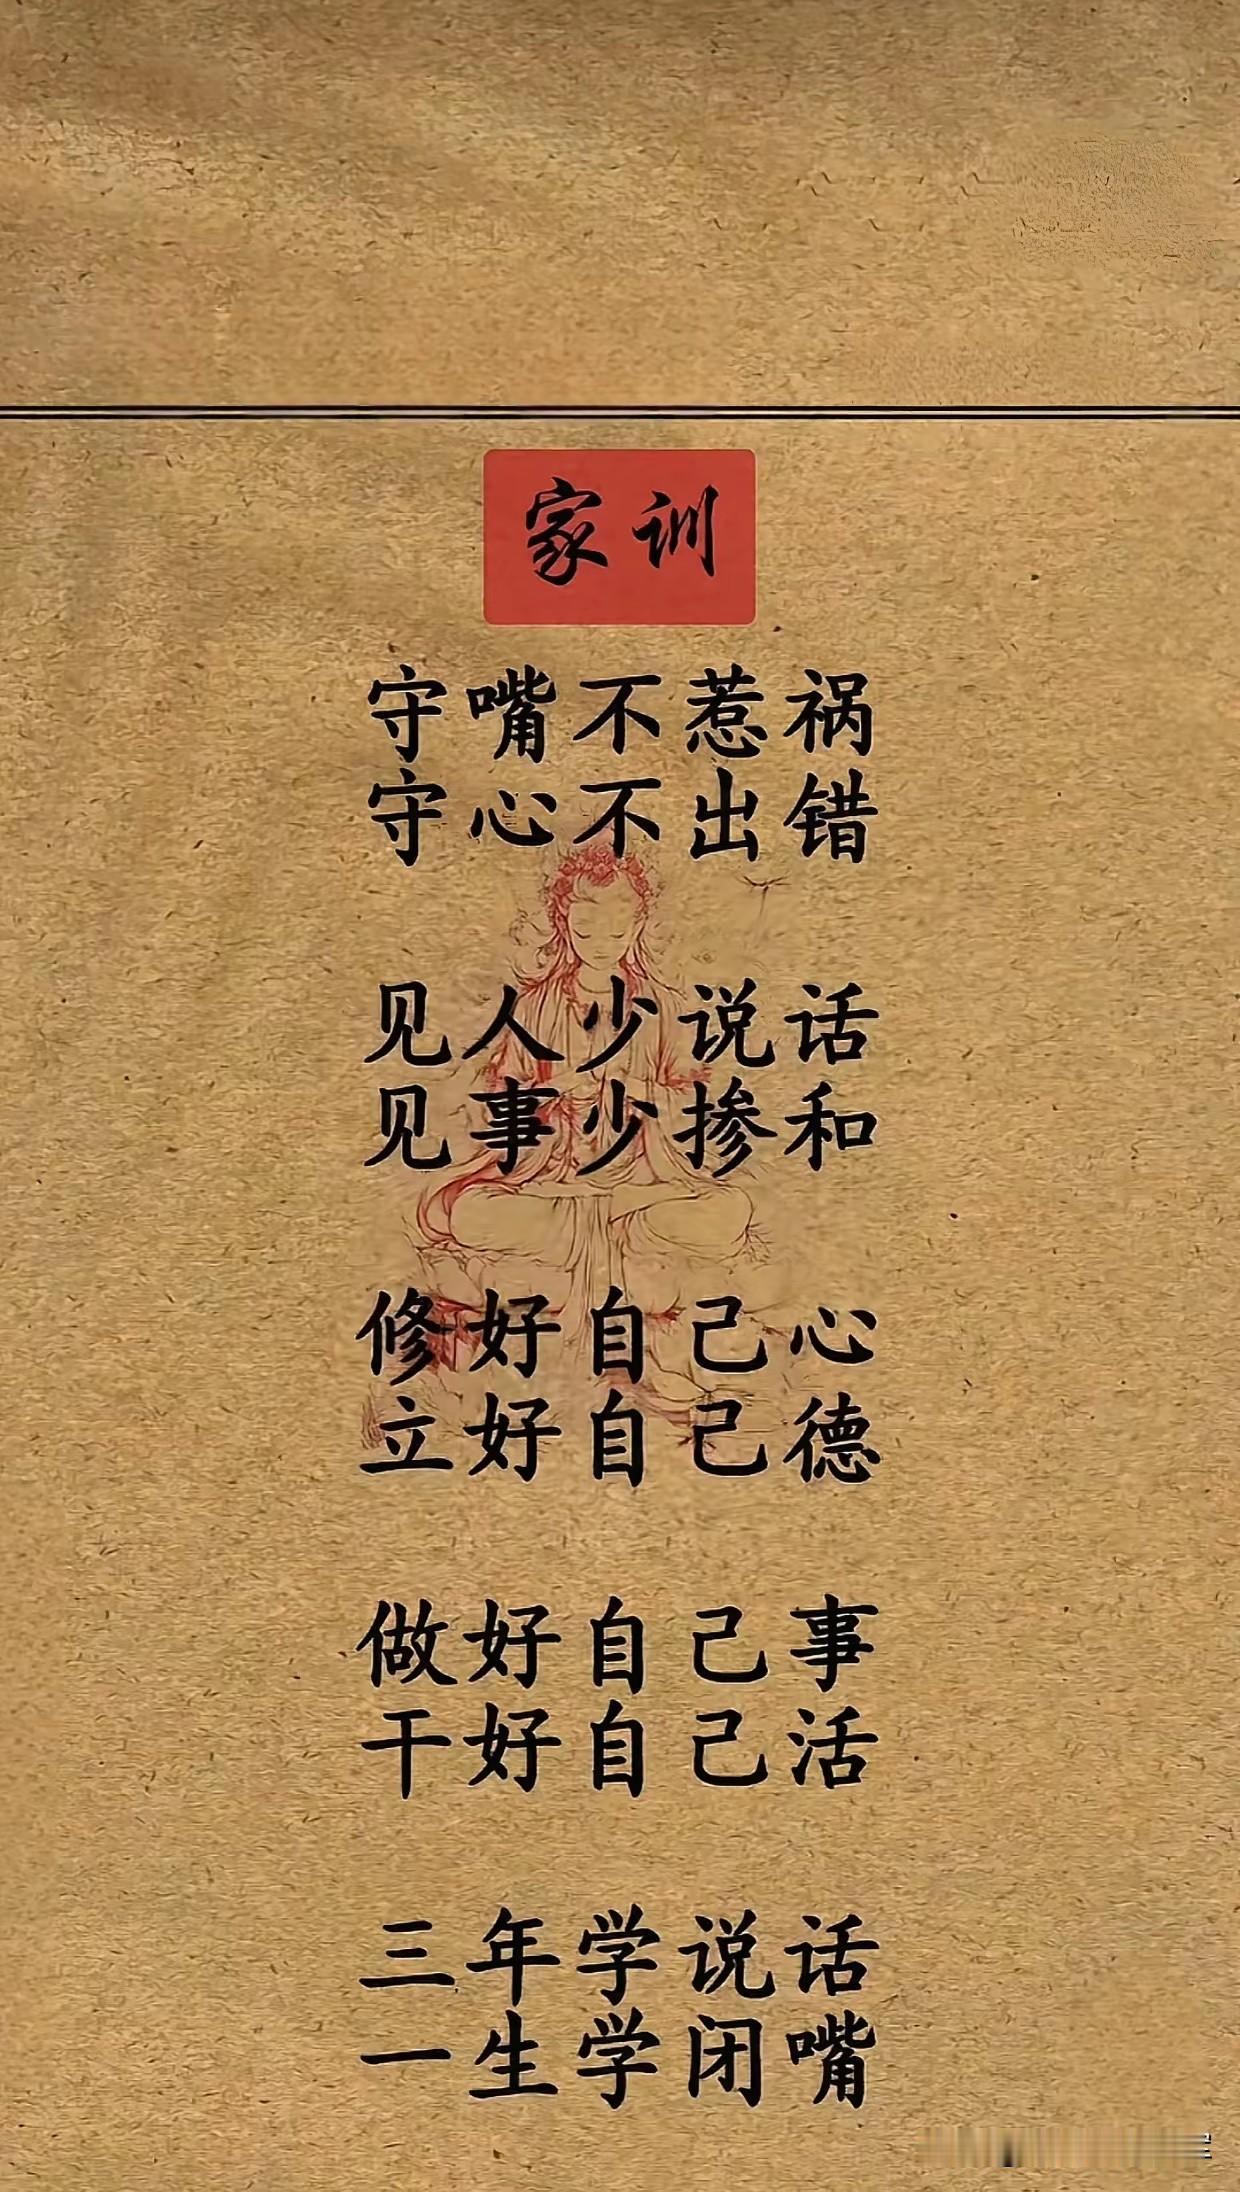 家训
守嘴不惹祸
守心不出错
见人少说话
见事少掺和
修好自己心
立好自己德
做好自己事
干好自己活
三年学说话
一生学闭嘴